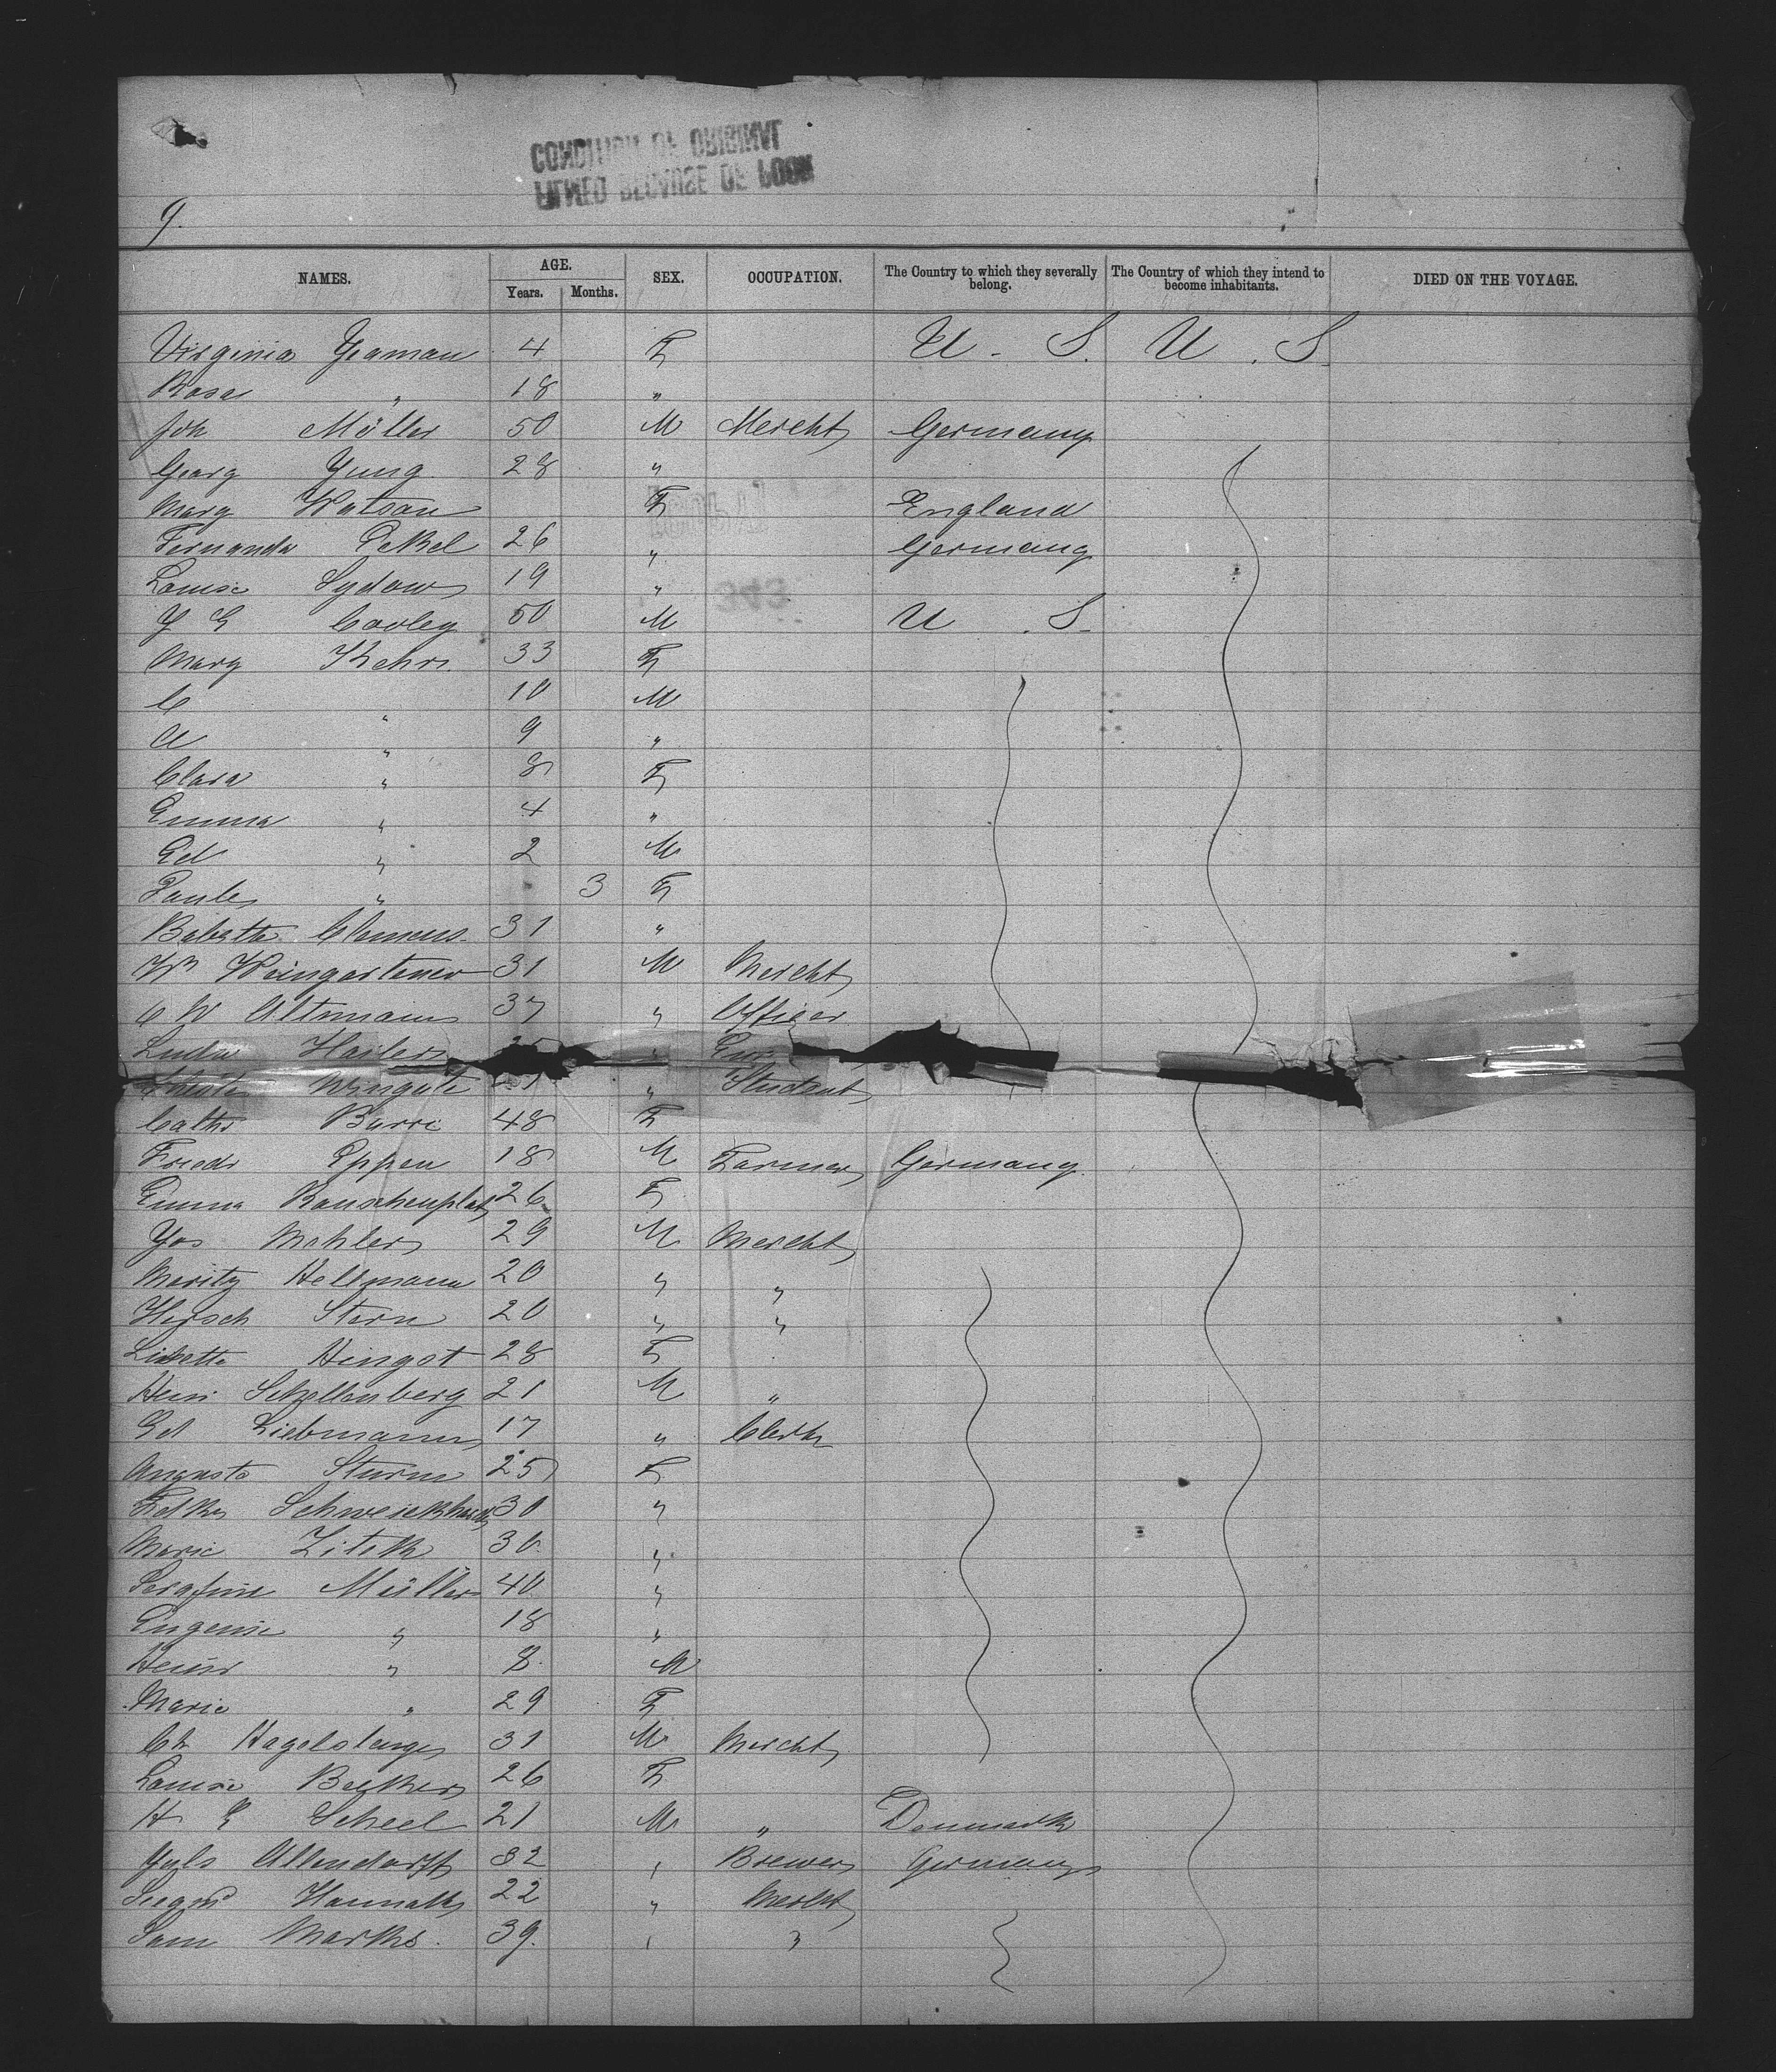 9.
NAMES. AGE. SEX. OCCUPATION. The Country to which they severally belong. The Country of which they intend to become inhabitants. DIED ON THE VOYAGE.
Years. Months.
Virginia Yeaman 4 F U. S. U. S.
Rosa " 18 "
Joh Möller 50 M Mercht Germany
Georg Jung 28 "
Mary Watson F England
Fernanda Pekel 26 " Germany
Louise Sydow 19 "
J G Cooley 50 M U. S.
Mary Kehr 33 F
C " 10 M
A " 9 "
Clara " 8 F
Emma " 4 "
Ed " 2 M
Paula " 3 F
Babette Clemens 31 "
Wm Weingartener 31 M Mercht
C W Altmann 37 " Officer
Ludw Hailer "
Wingate " Student
Cath Burri 48 F
Friedr Eppen 18 M Farmer Germany
Emma Rauschenplat 26 F
Jos Mahler 29 M Mercht
Moritz Hellmann 20 " "
Hersch Stern 20 " "
Lisette Hingst 28 F
Heinr Schellenberg 21 M "
Ed Liebmann 17 " Clerk
Augusta Sturm 25 F
Schweickhardt 30 "
Marie Zitek 30 "
Serafine Müller 40 "
Eugenie " 18 "
Heinr " 8 M
Marie " 29 F
Ch Hagelstange 31 M Mercht
Louise Becker 26 F
H E Scheel 21 M " Denmark
Juls Allendorff 32 " Brewer Germany
Siegm Hannak 22 " Mercht
Sam Marks. 39. " "